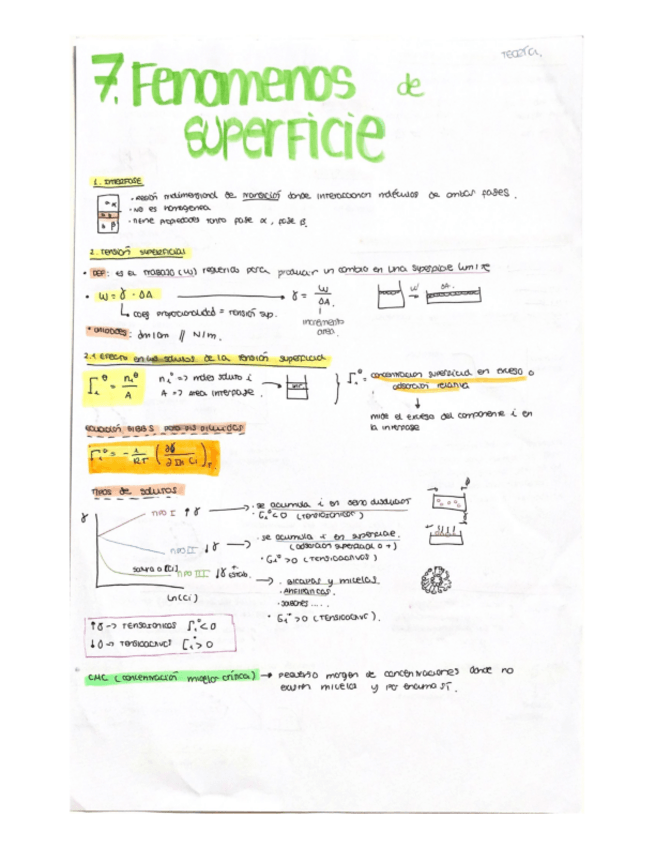 teoría.
7. Fenomenos de
superficie
1. INTERFASE
• región tridimensional de transición donde interaccionan moléculas de ambas fases.
• no es homogenea
• tiene propiedades tanto fase α, fase β.
α
β
2. Tensión superficial
• DEF: es el trabajo (W) requerido para producir un cambio en una superficie límite
• W = γ · ΔA → γ = W / ΔA
W ΔA.
↳ coef proporcionalidad = tensión sup.
incremento
area.
• unidades: din/cm // N/m.
2.1 Efecto en los solutos de la tensión superficial
Γi^θ = ni^θ / A
ni^θ => moles soluto i
A => area interfase.
Γi^θ = concentración superficial en exceso o
adsorción relativa
mide el exceso del componente i en
la interfase
ecuación GIBBS para dis diluidas
Γi^θ = - 1/RT (∂γ / ∂ ln Ci)T
Tipos de solutos
γ
TIPO I ↑γ → • se acumula i en seno disolución
• Γi^θ < 0 (tensoionicos)
TIPO II ↓γ → • se acumula i en superficie.
(adsorción superficial o +)
• Gi^θ > 0 (tensioactivos)
TIPO III ↓γ → • bicapas y micelas.
• Anfifílicas.
• jabones .....
• Gi^+ > 0 (tensioact).
ln(Ci)
↑γ → Tensoionicos Γi^θ < 0
↓γ → Tensioact Γi^θ > 0
CMC (concentración micelar crítica) → pequeño margen de concentraciones donde no
existen micelas y por encima sí.